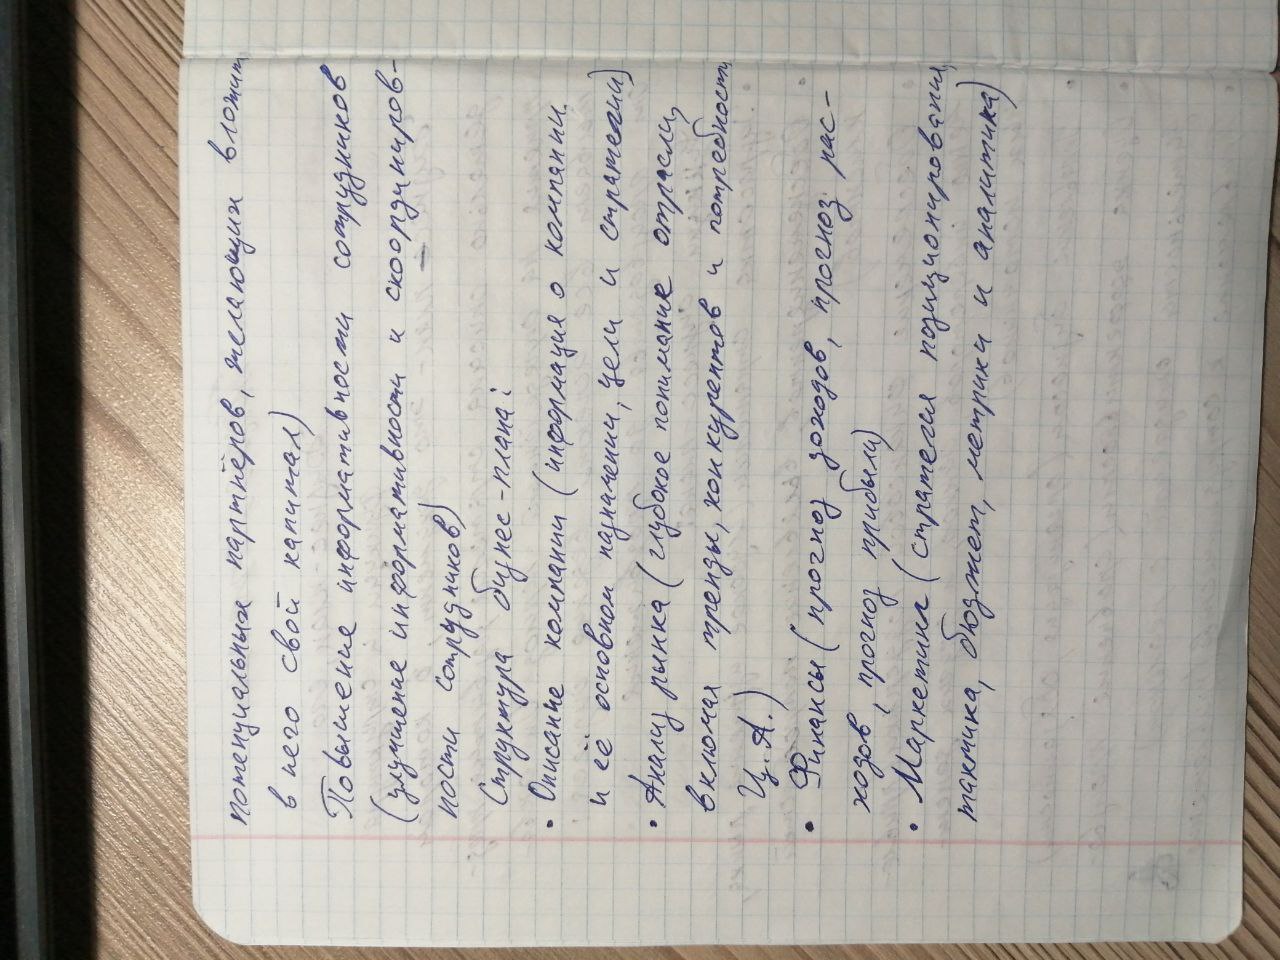 потенциальных партнёров, желающих вложить
в него свой капитал)
Повышение информативности сотрудников
(улучшение информативности и скоординиров-
ности сотрудников)
Структура бизнес-плана:
• Описание компании (информация о компании
и её основном назначении, цели и стратегии)
• Анализ рынка (глубокое понимание отрасли,
включая тренды, конкурентов и потребности
Ц.А.)
• Финансы (прогноз доходов, прогноз рас-
ходов, прогноз прибыли)
• Маркетинг (стратегия позиционирования,
тактика, бюджет, метрики и аналитика)